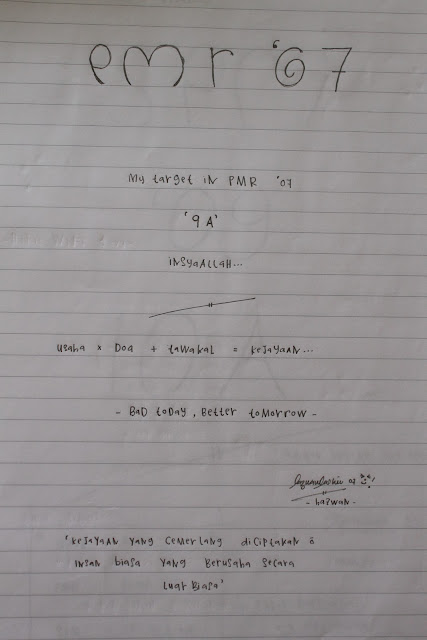 PMR '07
My target in PMR '07
'9A'
INSYAALLAH...
usaha × Doa + tawakal = kejayaan...
- BAD toDAY, Better toMorrow -
07
- hazwan -
"kejayaan yang cemerlang diciptakan o
insan biasa yang berusaha secara
luar biasa"